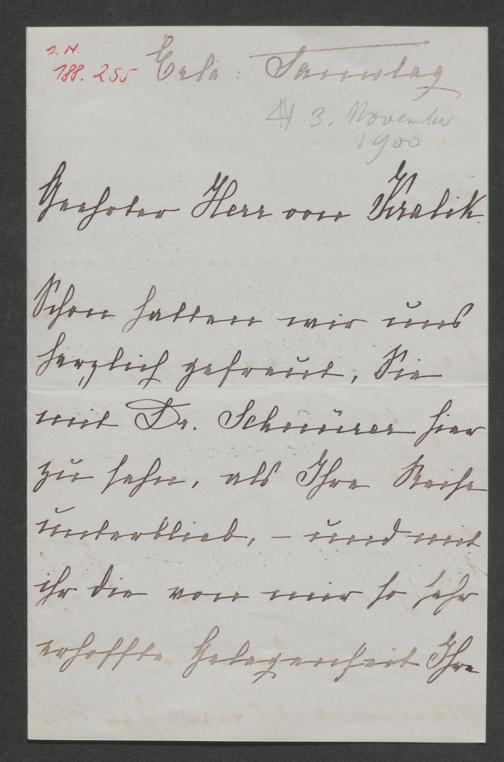 I. N.
188.255
Erla: Samstag
3. November
1900
Geehrter Herr von Kralik
Schon hatten wir uns
herzlich gefreut, Sie
mit Dr. Schnürer hier
zu sehn, als Ihre Reise
unterblieb, – und mit
ihr die von mir so sehr
erhoffte Gelegenheit Ihre